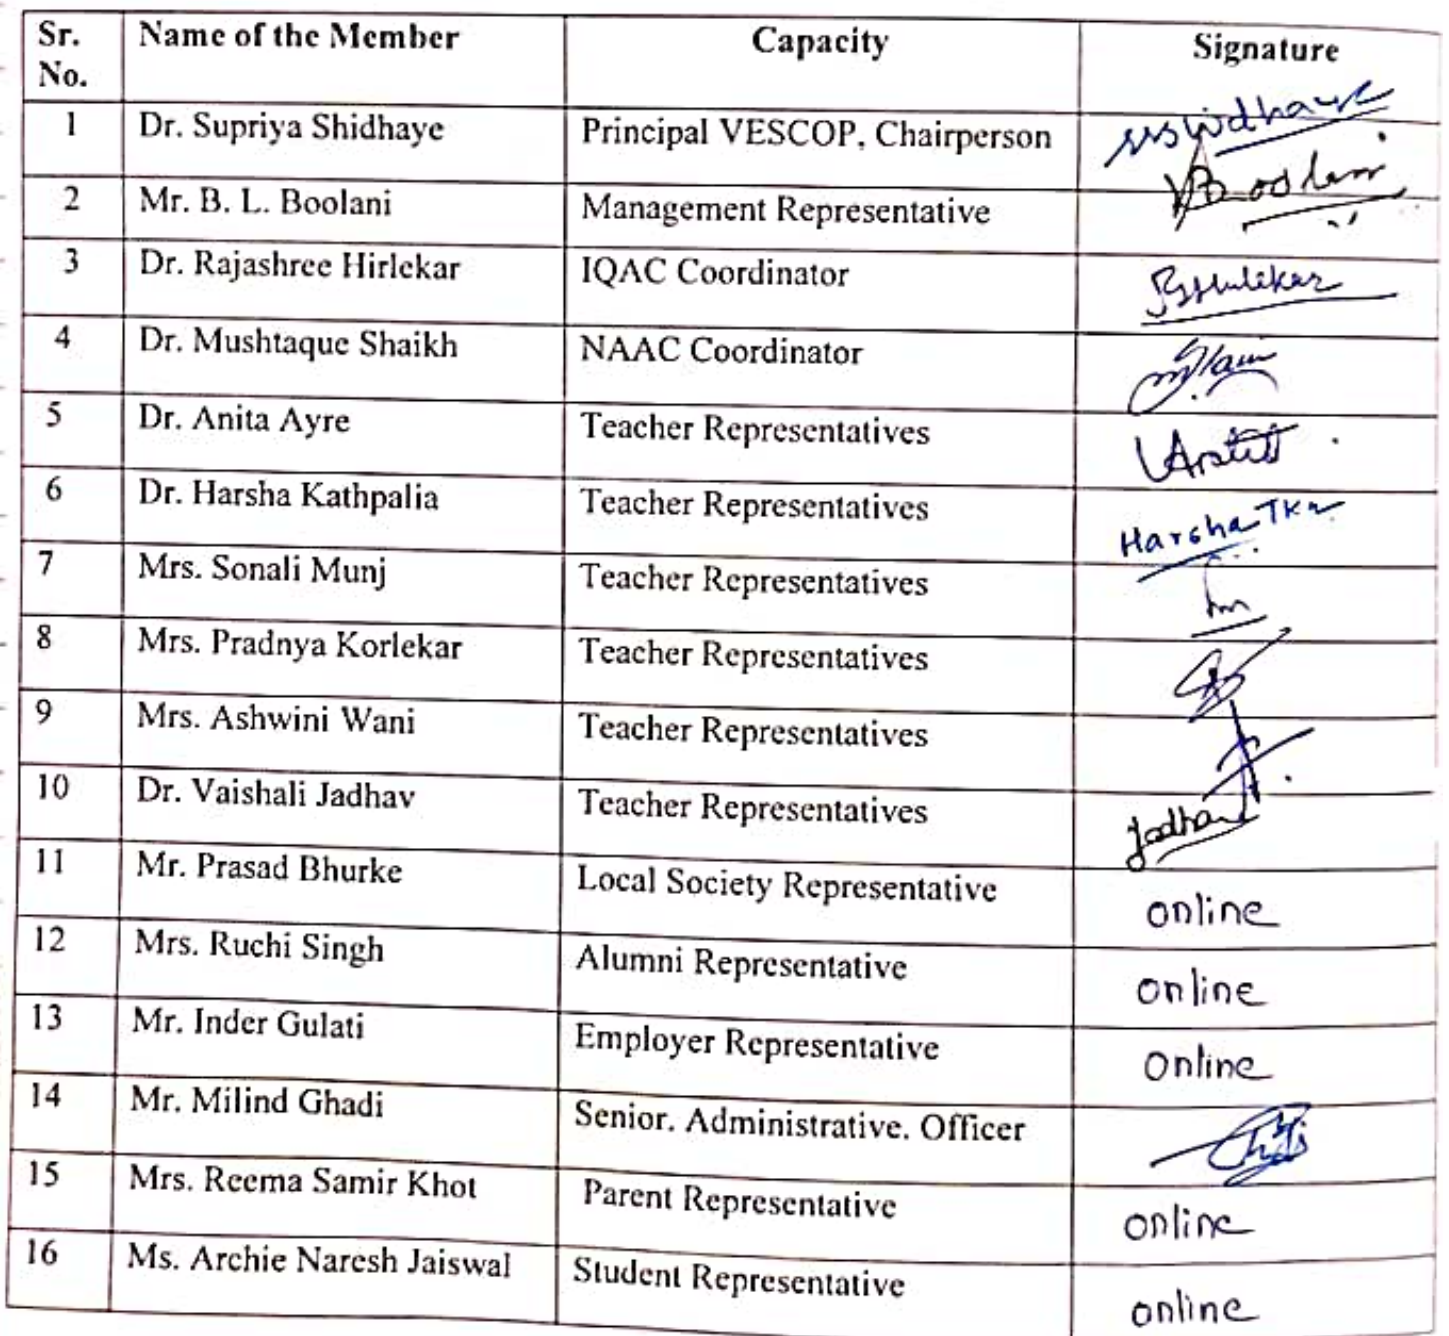 Sr. No. Name of the Member Capacity Signature
1 Dr. Supriya Shidhaye Principal VESCOP, Chairperson
2 Mr. B. L. Boolani Management Representative Boolani
3 Dr. Rajashree Hirlekar IQAC Coordinator
4 Dr. Mushtaque Shaikh NAAC Coordinator
5 Dr. Anita Ayre Teacher Representatives
6 Dr. Harsha Kathpalia Teacher Representatives Harsha
7 Mrs. Sonali Munj Teacher Representatives
8 Mrs. Pradnya Korlekar Teacher Representatives
9 Mrs. Ashwini Wani Teacher Representatives
10 Dr. Vaishali Jadhav Teacher Representatives Jadhav
11 Mr. Prasad Bhurke Local Society Representative online
12 Mrs. Ruchi Singh Alumni Representative online
13 Mr. Inder Gulati Employer Representative online
14 Mr. Milind Ghadi Senior. Administrative. Officer
15 Mrs. Reema Samir Khot Parent Representative online
16 Ms. Archie Naresh Jaiswal Student Representative online